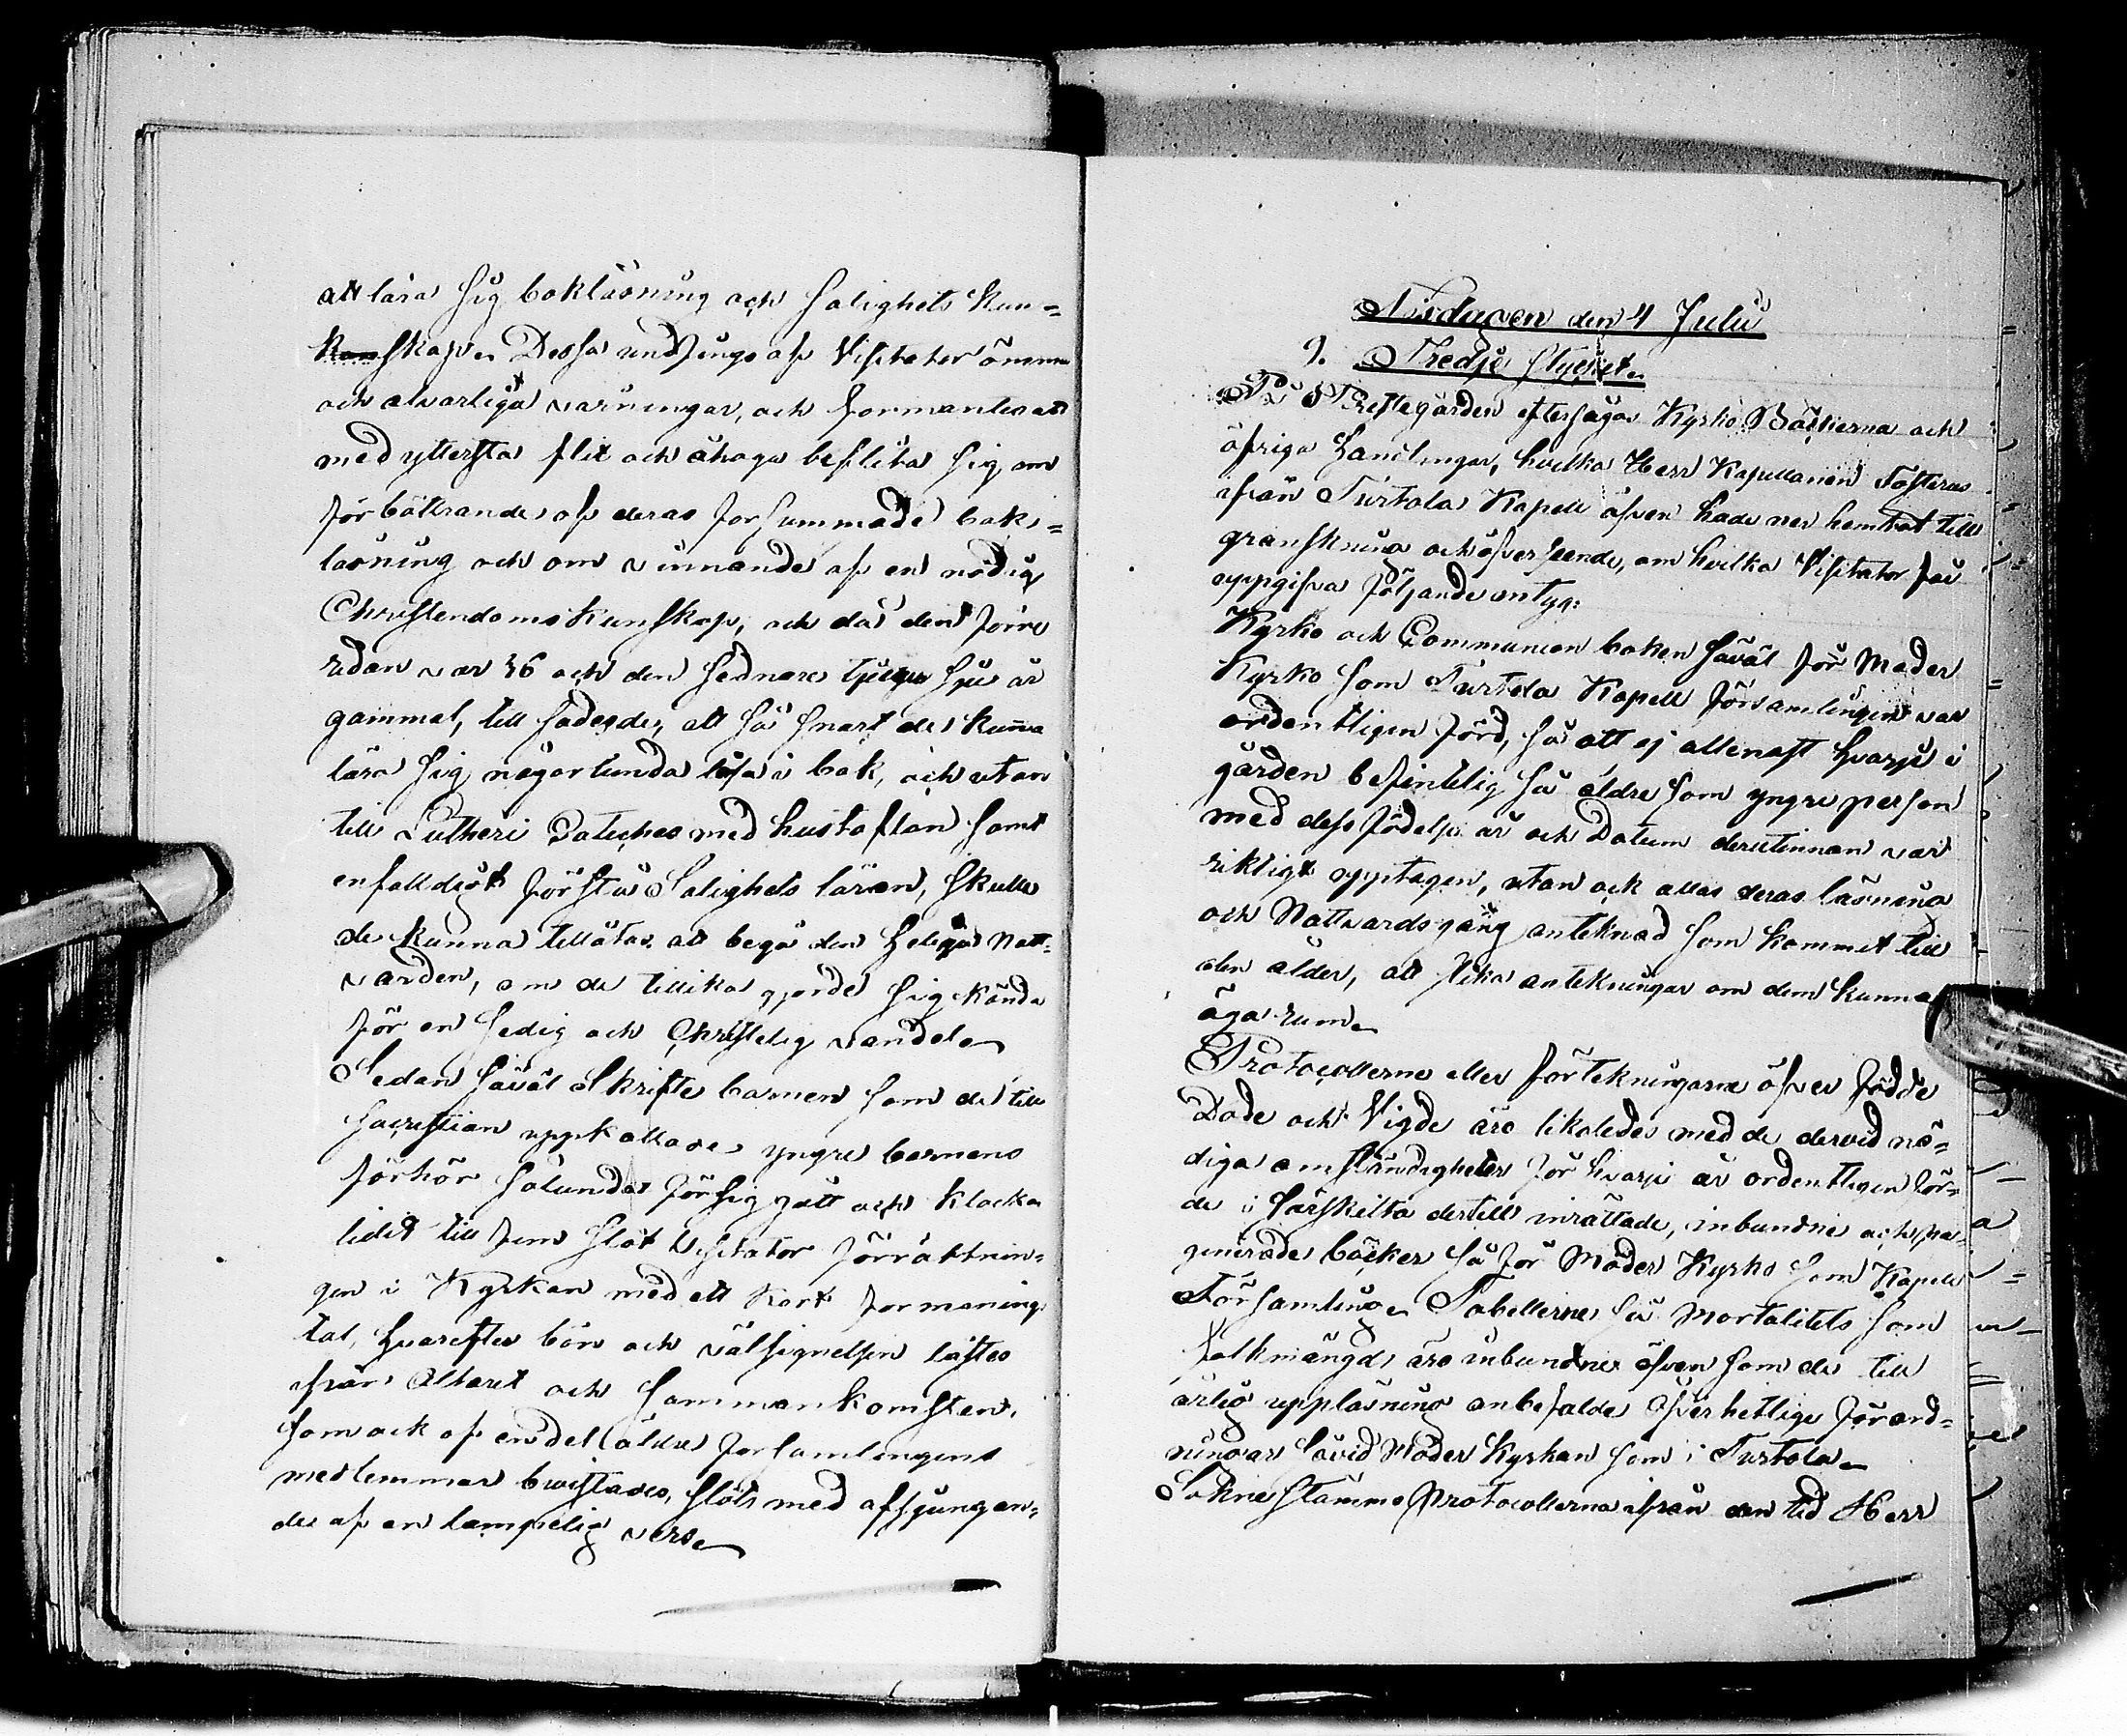 att lära sig bokläsning och salighets kun=
skaper. Dessa undfingo af Visitator ömma
och alvarliga varningar, och formantes att
med yttersta flit och åhoga beflita sig om
förbättrande af deras forsummade bok=
läsning och om vinnande af en nödig
Christendoms Kunskap, och då den förre
redan var 36 och den sednare tjugu sju år
gammal, till sades de, att så snart de kunna
lära sig någorlunda läsa i bok, och utan
till Lutheri Cateches med hustaflan samt
enfalldigt förstå Salighets läran, skulle
de kunna tillåtas att begå den Heliga Natt=
varden, om de tillika gjorde sig kända
för en sedig och Christelig vandel.
Sedan såväl Skrifte barnen som de till
Sacristian uppkallade yngre barnens
förhör sålunda försiggått och klockan
lidit till fem slöt Visitator förrättnin=
gen i Kyrkan med ett kort formanings
tal, hvarefter bön och välsignelsen lästes
ifrån Altaret och sammankomsten,
som ock af en del äldre forsamlingens
medlemmar bevistades, slöts med afsjungan=
de af en lämpelig vers.
Tisdagen den 4 Julii
9. Tredje stycket.
På Prestegården eftersågos Kyrko Böckerna och
öfriga Handlingar, hvilka Herr Kapellanen
ifrån Turtola Kapell äfven hade med hemtat till
granskning och öfverseende, om hvilka Visitator får
uppgifva följande intyg:
Kyrko och Communion boken såväl för Moder
Kyrko som Turtola Kapell Församlingen var
ordentligen förd, så att ej allenast hvarje i
gården befintelig så äldre som yngre person
med dess födelse år och Datum derutinnan var
riktigt upptagen, utan ock allas deras läsning
och Nattvardsgång anteknad som kommit till
den ålder, att slika antekningar om dem kunna
äga rum.
Protocollerne eller förtekningarne öfver födde
Döde och Vigde äro likaledes med de dervid nö=
diga omständigheter för hvarje år ordentligen för=
de i särskilta dertill inrättade, inbundne och pa=
ginerade böcker så för Moder Kyrko som Kapell
Församling. Tabellerne så Mortalitets som
folkmängds äro inbundne äfven som de till
årlig uppläsning anbefalde Öfverhetlige Förord=
ningar såvid Moder Kyrkan som i Turtola.
Sokne stämmo Protocollerna ifrån den tid Herr